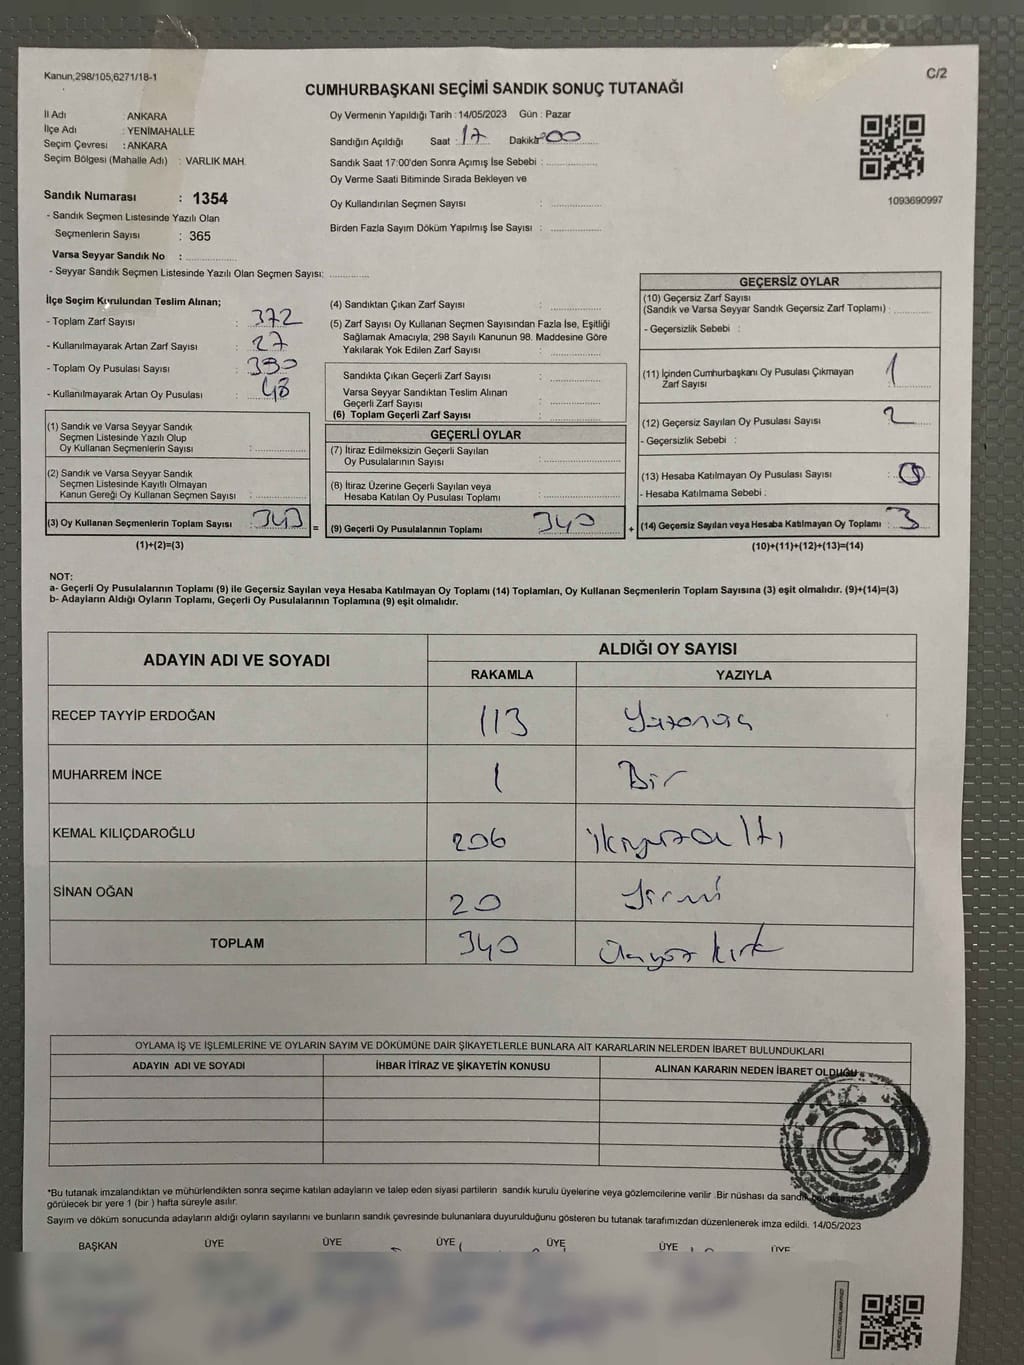 Kanun,298/105,6271/18-1
C/2
CUMHURBAŞKANI SEÇİMİ SANDIK SONUÇ TUTANAĞI
İl Adı : ANKARA
İlçe Adı : YENİMAHALLE
Seçim Çevresi : ANKARA
Seçim Bölgesi (Mahalle Adı) : VARLIK MAH.
Sandık Numarası : 1354
- Sandık Seçmen Listesinde Yazılı Olan
Seçmenlerin Sayısı : 365
Varsa Seyyar Sandık No : ................
- Seyyar Sandık Seçmen Listesinde Yazılı Olan Seçmen Sayısı: ............
Oy Vermenin Yapıldığı Tarih : 14/05/2023 Gün : Pazar
Sandığın Açıldığı Saat : 17 Dakika 00
Sandık Saat 17:00'den Sonra Açımış İse Sebebi : ................
Oy Verme Saati Bitiminde Sırada Bekleyen ve
Oy Kullandırılan Seçmen Sayısı : ................
Birden Fazla Sayım Döküm Yapılmış İse Sayısı : ................
1093690997
İlçe Seçim Kurulundan Teslim Alınan;
- Toplam Zarf Sayısı : 372
- Kullanılmayarak Artan Zarf Sayısı : 27
- Toplam Oy Pusulası Sayısı : 390
- Kullanılmayarak Artan Oy Pusulası : 48
(1) Sandık ve Varsa Seyyar Sandık
Seçmen Listesinde Yazılı Olup
Oy Kullanan Seçmenlerin Sayısı : ................
(2) Sandık ve Varsa Seyyar Sandık
Seçmen Listesinde Kayıtlı Olmayan
Kanun Gereği Oy Kullanan Seçmen Sayısı : ................
(3) Oy Kullanan Seçmenlerin Toplam Sayısı : 343 =
(1)+(2)=(3)
(4) Sandıktan Çıkan Zarf Sayısı : ................
(5) Zarf Sayısı Oy Kullanan Seçmen Sayısından Fazla İse, Eşitliği
Sağlamak Amacıyla, 298 Sayılı Kanunun 98. Maddesine Göre
Yakılarak Yok Edilen Zarf Sayısı : ................
Sandıkta Çıkan Geçerli Zarf Sayısı : ................
Varsa Seyyar Sandıktan Teslim Alınan
Geçerli Zarf Sayısı : ................
(6) Toplam Geçerli Zarf Sayısı : ................
GEÇERLİ OYLAR
(7) İtiraz Edilmeksizin Geçerli Sayılan
Oy Pusulalarının Sayısı : ................
(8) İtiraz Üzerine Geçerli Sayılan veya
Hesaba Katılan Oy Pusulası Toplamı : ................
(9) Geçerli Oy Pusulalarının Toplamı 340 +
GEÇERSİZ OYLAR
(10) Geçersiz Zarf Sayısı
(Sandık ve Varsa Seyyar Sandık Geçersiz Zarf Toplamı) : ............
- Geçersizlik Sebebi :
(11) İçinden Cumhurbaşkanı Oy Pusulası Çıkmayan
Zarf Sayısı : 1
(12) Geçersiz Sayılan Oy Pusulası Sayısı : 2
- Geçersizlik Sebebi :
(13) Hesaba Katılmayan Oy Pusulası Sayısı : 0
- Hesaba Katılmama Sebebi :
(14) Geçersiz Sayılan veya Hesaba Katılmayan Oy Toplamı : 3
(10)+(11)+(12)+(13)=(14)
NOT:
a- Geçerli Oy Pusulalarının Toplamı (9) ile Geçersiz Sayılan veya Hesaba Katılmayan Oy Toplamı (14) Toplamları, Oy Kullanan Seçmenlerin Toplam Sayısına (3) eşit olmalıdır. (9)+(14)=(3)
b- Adayların Aldığı Oyların Toplamı, Geçerli Oy Pusulalarının Toplamına (9) eşit olmalıdır.
ADAYIN ADI VE SOYADI
ALDIĞI OY SAYISI
RAKAMLA YAZIYLA
RECEP TAYYİP ERDOĞAN 113
MUHARREM İNCE 1 Bir
KEMAL KILIÇDAROĞLU 206 ikiyüzaltı
SİNAN OĞAN 20 Yirmi
TOPLAM 340 Üçyüz kırk
OYLAMA İŞ VE İŞLEMLERİNE VE OYLARIN SAYIM VE DÖKÜMÜNE DAİR ŞİKAYETLERLE BUNLARA AİT KARARLARIN NELERDEN İBARET BULUNDUKLARI
ADAYIN ADI VE SOYADI İHBAR İTİRAZ VE ŞİKAYETİN KONUSU ALINAN KARARIN NEDEN İBARET OLDUĞU
T.C.
*Bu tutanak imzalandıktan ve mühürlendikten sonra seçime katılan adayların ve talep eden siyasi partilerin sandık kurulu üyelerine veya gözlemcilerine verilir .Bir nüshası da sandık çevresinde
görülecek bir yere 1 (bir ) hafta süreyle asılır.
Sayım ve döküm sonucunda adayların aldığı oyların sayılarını ve bunların sandık çevresinde bulunanlara duyurulduğunu gösteren bu tutanak tarafımızdan düzenlenerek imza edildi. 14/05/2023
BAŞKAN ÜYE ÜYE ÜYE ÜYE ÜYE ÜYE